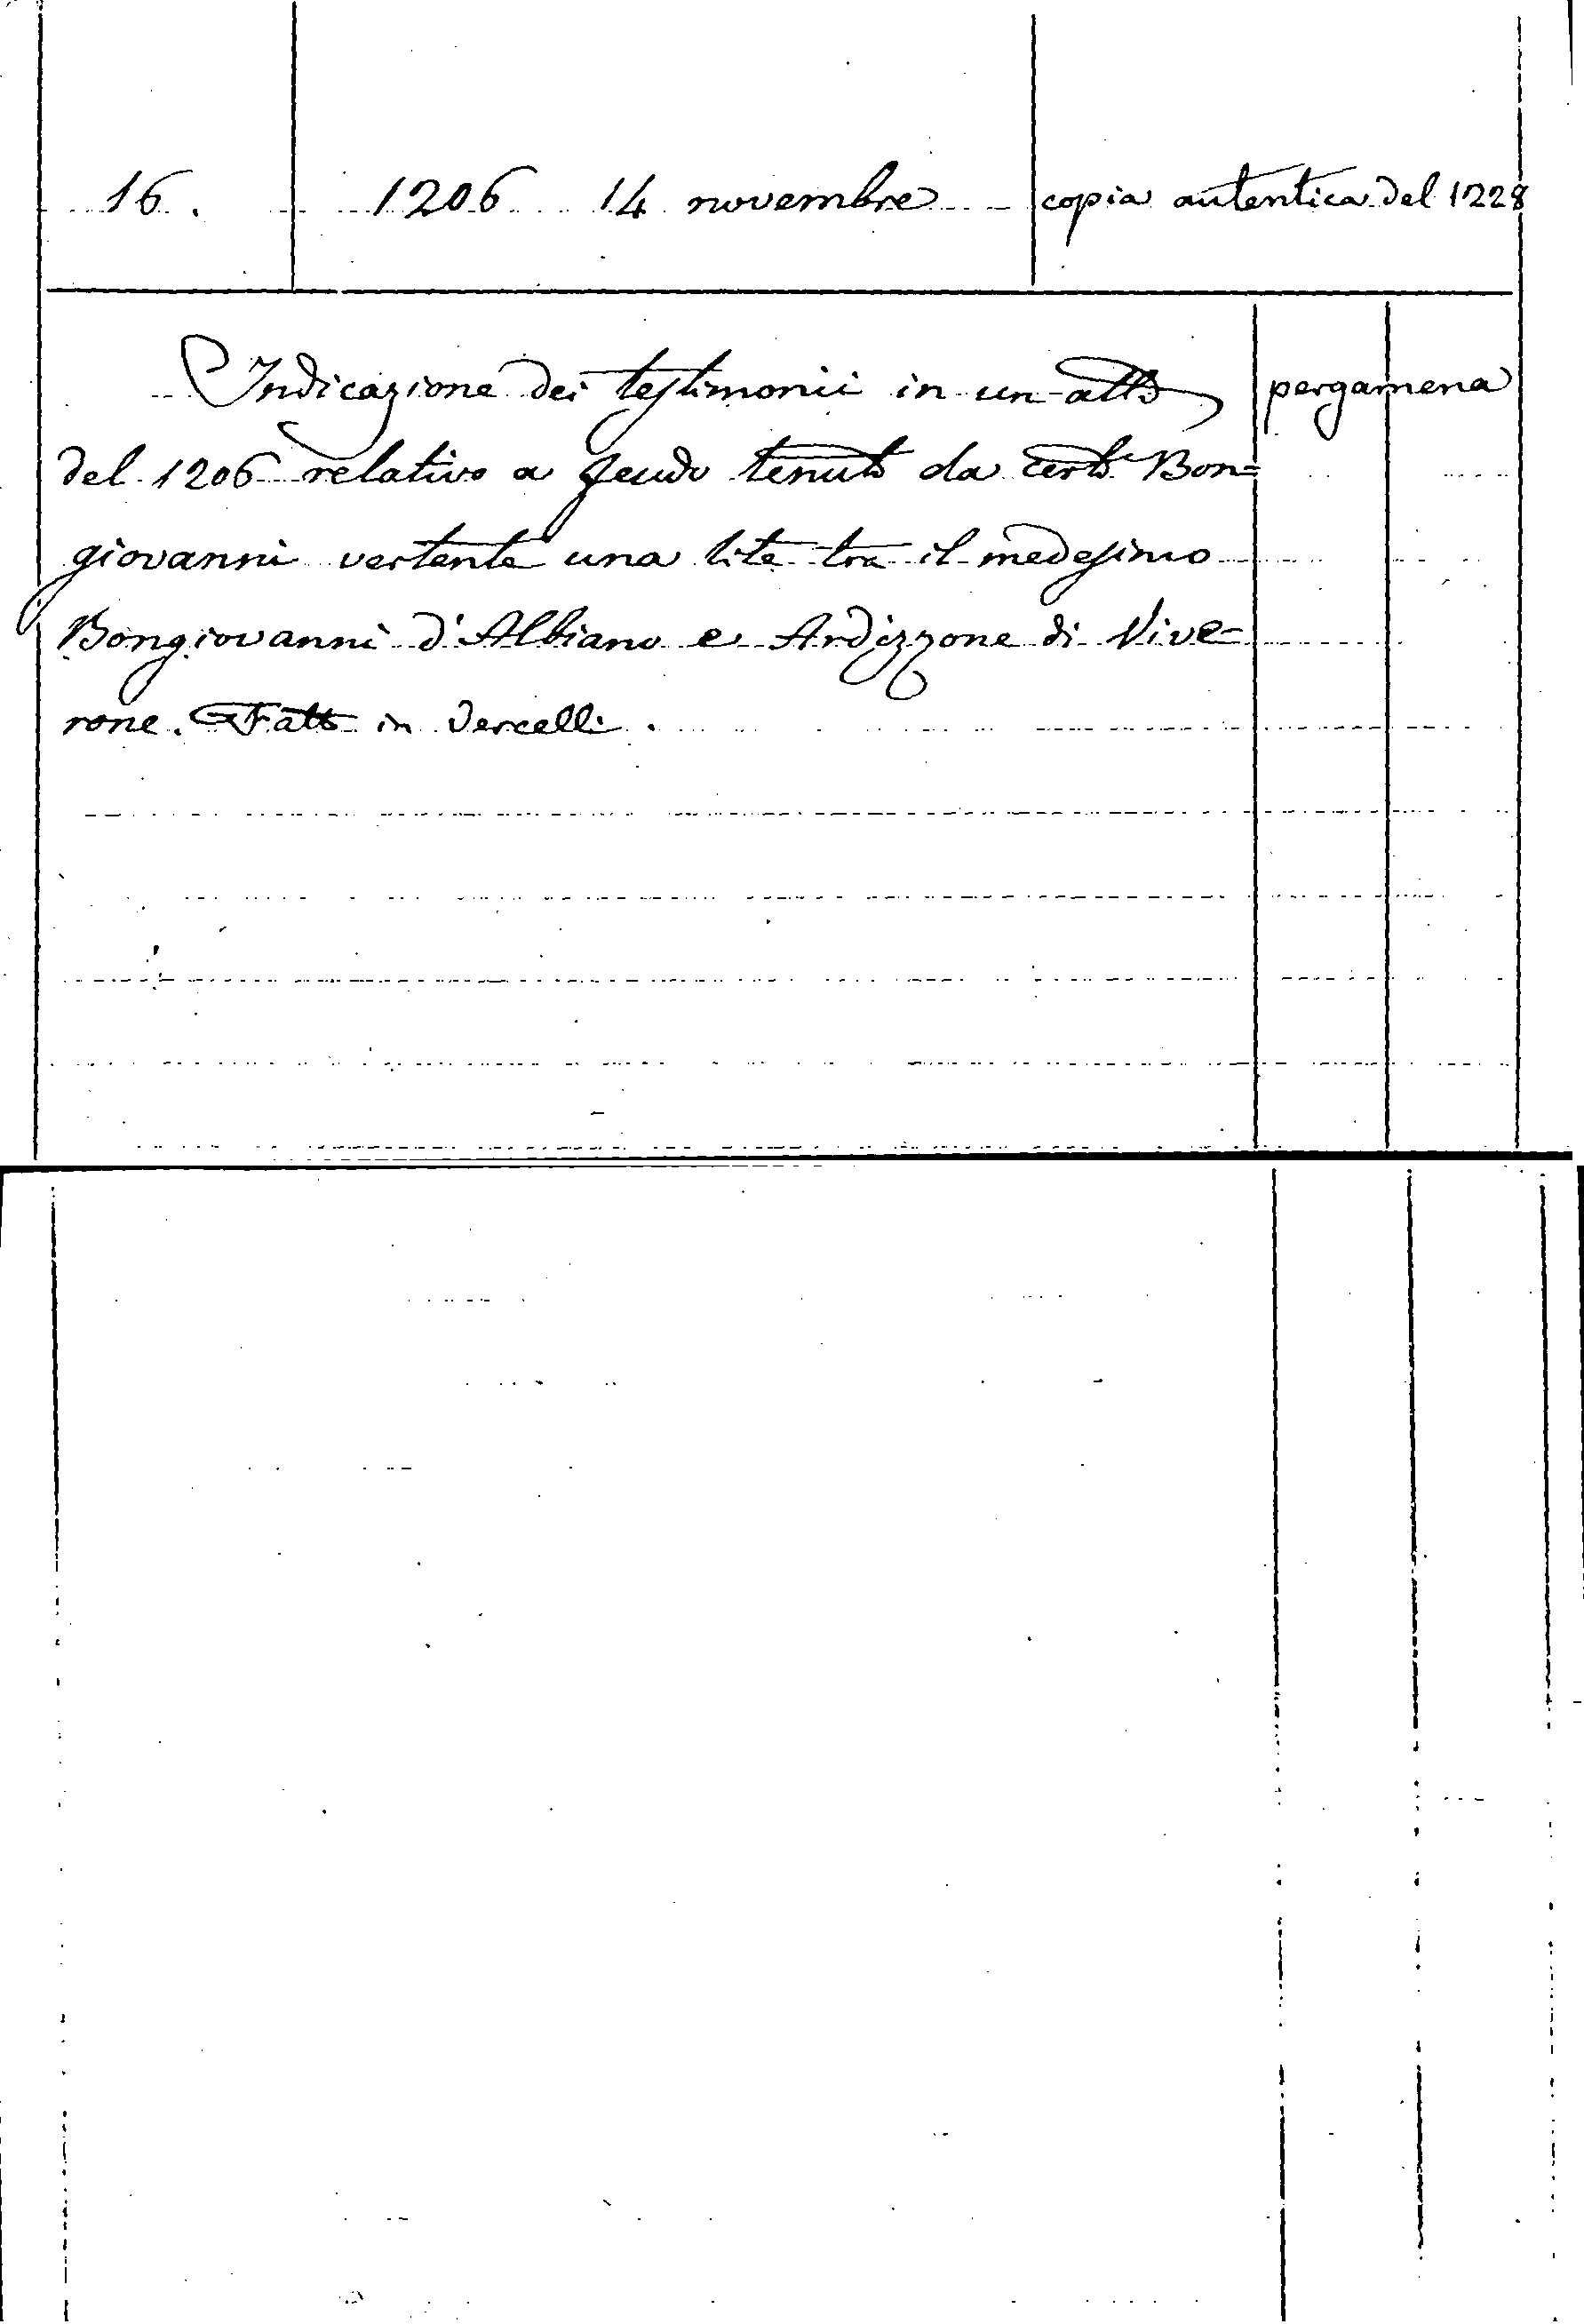 16. 1206 14 novembre copia autentica del 1228
Indicazione dei testimonii in un atto pergamena
del 1206 relativo a feudo tenuto da certo Bon=
giovanni vertente una lite tra il medesimo
Bongiovanni d'Albiano e Ardizzone di Vive=
rone. Fatto in Vercelli.